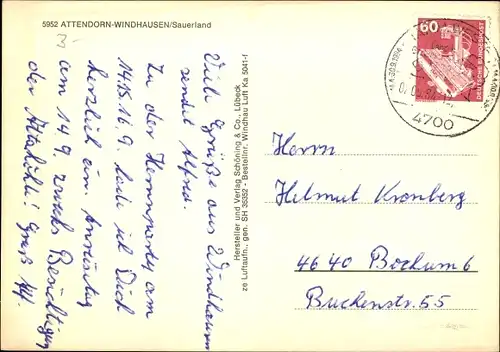 5952 ATTENDORN-WINDHAUSEN/Sauerland
3-
Viele Grüße aus Windhausen
sendet Alfred.
Zu der Herrenparty am
14.15.16.9. lade ich Dich
herzlich ein. Anreisetag
am 14.9. zwecks Besichtigung
der Attahöhle! Gruß
Hersteller und Verlag Schöning & Co., Lübeck
ze Luftaufn., gen. SH 35352 - Bestellnr. Windhau Luft Ka 5041-f
60
DEUTSCHE BUNDESPOST
4700
Herrn
Helmut Kronberg
4640 Bochum 6
Buchenstr. 55